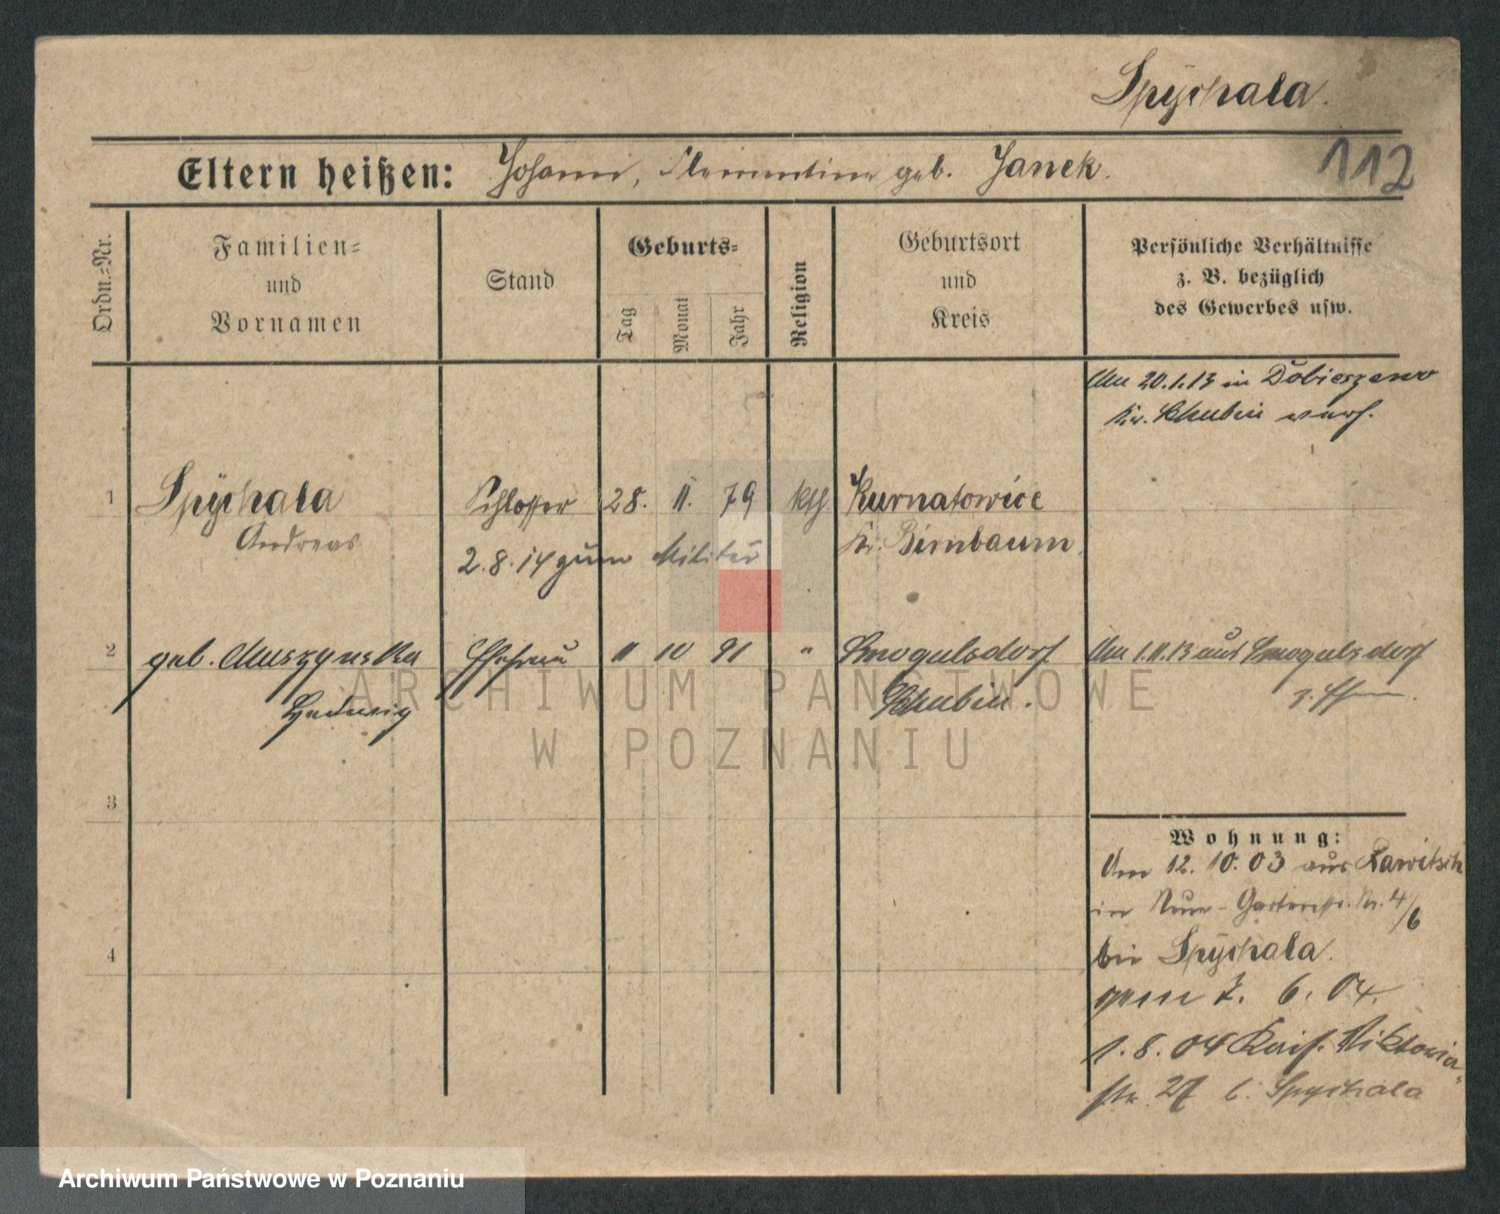 Spÿchala.
112
Eltern heißen: Johann, Florentine geb. Janek.
Ordn.=Nr.
Familien=
und
Vornamen
Stand
Geburts=
Tag
Monat
Jahr
Religion
Geburtsort
und
Kreis
Persönliche Verhältnisse
z. B. bezüglich
des Gewerbes usw.
Am 20.1.13 in Dobieszewo
Kr. Schubin verh.
1 Spÿchala Schlosser 28. 11. 79 kth Kurnatowice
Andreas Kr. Birnbaum.
2.8.14 zum Militär
2 geb. Muszynska Ehefrau 11 10 91 " Smogulsdorf
Hedwig Schubin.
Am 1.11.13 aus Smogulsdorf
z. Ehem.
3
4
Wohnung:
Am 12. 10. 03 aus Rawitsch
in Neue-Gartenstr. Nr. 4/6
bei Spÿchala.
gem 7. 6. 04.
1. 8. 04 Kais. Viktoria-
str. 27 b. Spychala
ARCHIWUM PAŃSTWOWE
W POZNANIU
Archiwum Państwowe w Poznaniu